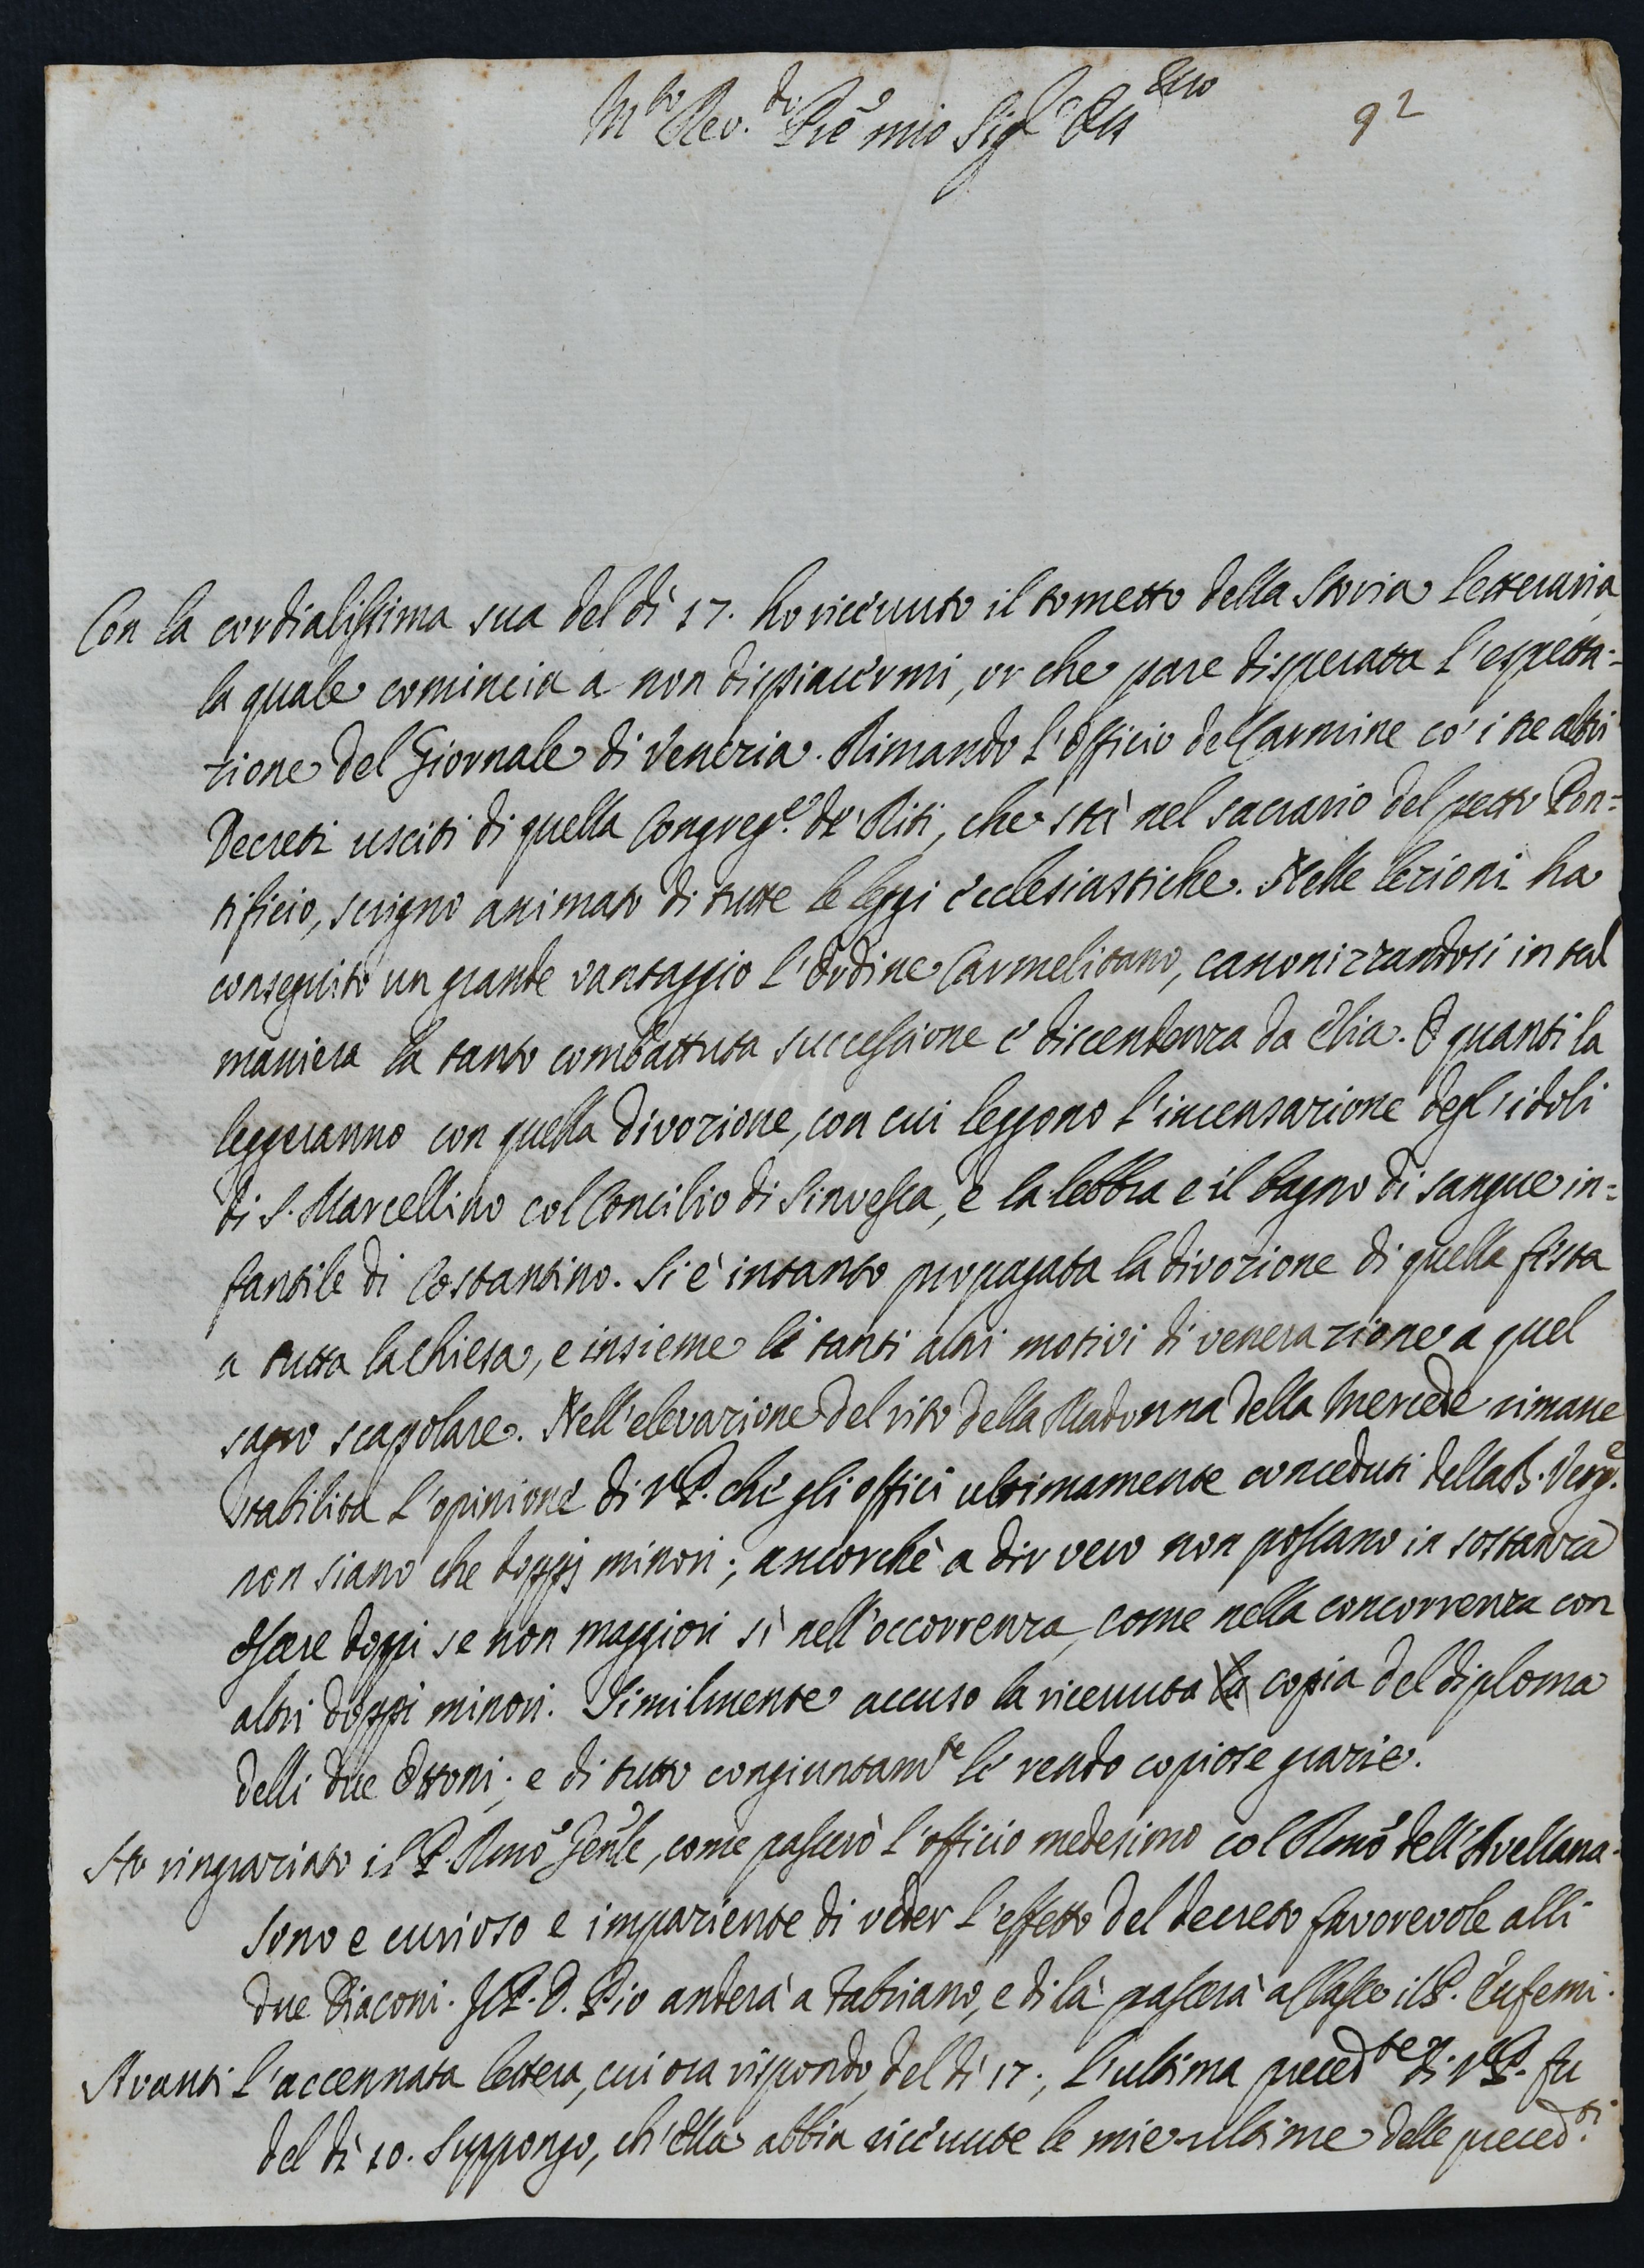 M.to Rev.do Prê mio Sig.r Oss.mo
92
Con la cordialissima sua del dì 17. ho ricevuto il tometto della Storia letteraria
la quale comincia a non dispiacermi, or che pare disperata l'espetta=
zione del Giornale di Venezia. Rimando l'Officio del Carmine co' i tre altri
Decreti usciti di quella Congreg.e de' Riti, che stà nel sacrario del petto Pon=
tificio, scrigno animato di tutte le leggi ecclesiastiche. Nelle lezioni ha
conseguito un grande vantaggio l'Ordine Carmelitano, canonizzandosi in tal
maniera la tanto combattuta successione e discendenza da Elia. O quanti la
leggeranno con quella divozione, con cui leggono l'incensazione degl'idoli
di S. Marcellino col Concilio di Sinvessa, e la lebbra e il bagno di sangue in=
fantile di Costantino. Si è intanto propagata la divozione di quella festa
a tutta la Chiesa, e insieme li tanti altri motivi di venerazione a quel
sagro scapolare. Nell'elevazione del rito della Madonna della Mercede rimane
stabilita l'opinione di V.P. che gli offici ultimamente conceduti della B. Verg.e
non siano che doppj minori; ancorchè a dir vero non possano in sostanza
essere doppi se non maggiori sì nell'occorrenza, come nella concorrenza con
altri doppi minori. Similmente accuso la ricevuta la copia del diploma
delli due Ottoni; e di tutto congiuntam.te le rendo copiose grazie.
Ho ringraziato il P. Rmô Gen̂le, come passerò l'officio medesimo col Rmô dell'Avellana.
Sono e curioso e impaziente di veder l'effetto del decreto favorevole alli
due Diaconi. Il P. D. Pio anderà a Fabriano, e di là passerà al Sasso il P. Eufemi.
Avanti l'accennata lettera, cui ora rispondo, del dì 17., l'ultima preced.te di V.P. fu
del dì 10. Suppongo, ch'Ella abbia ricevute le mie ultime delle preced.ti